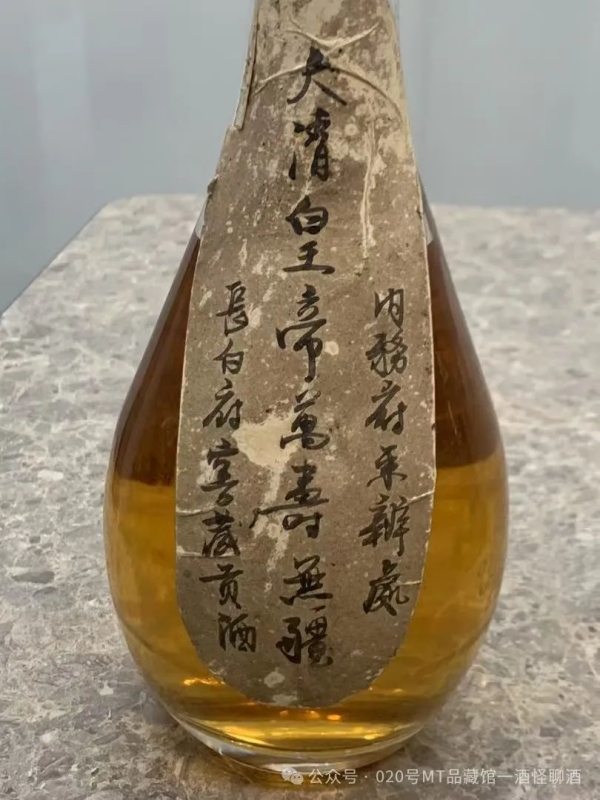 内務府采辦處
大清皇帝萬壽無疆
長白府窖藏貢酒
公众号 · 020号MT品藏馆一酒怪聊酒